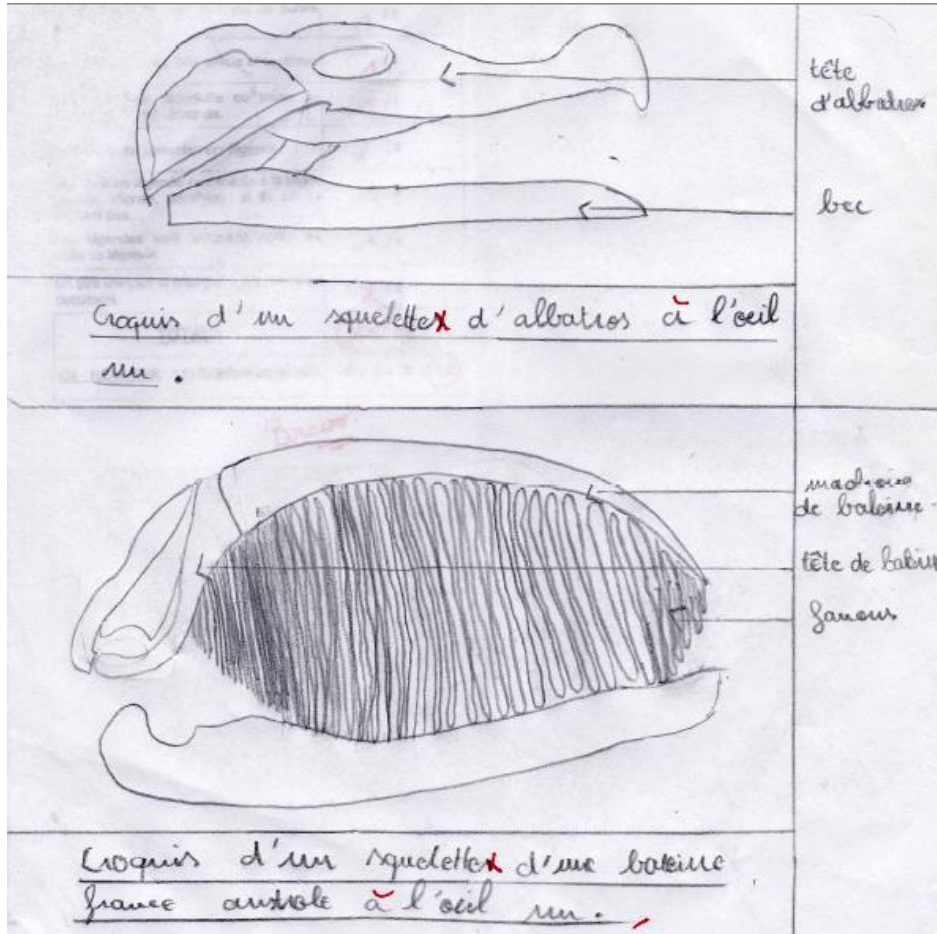 tête
d'albatros
bec
Croquis d'un squelette d'albatros à l'oeil
nu.
Bravo
machoire
de baleine
tête de balein
fanons
Croquis d'un squelette d'une baleine
france australe à l'oeil nu.